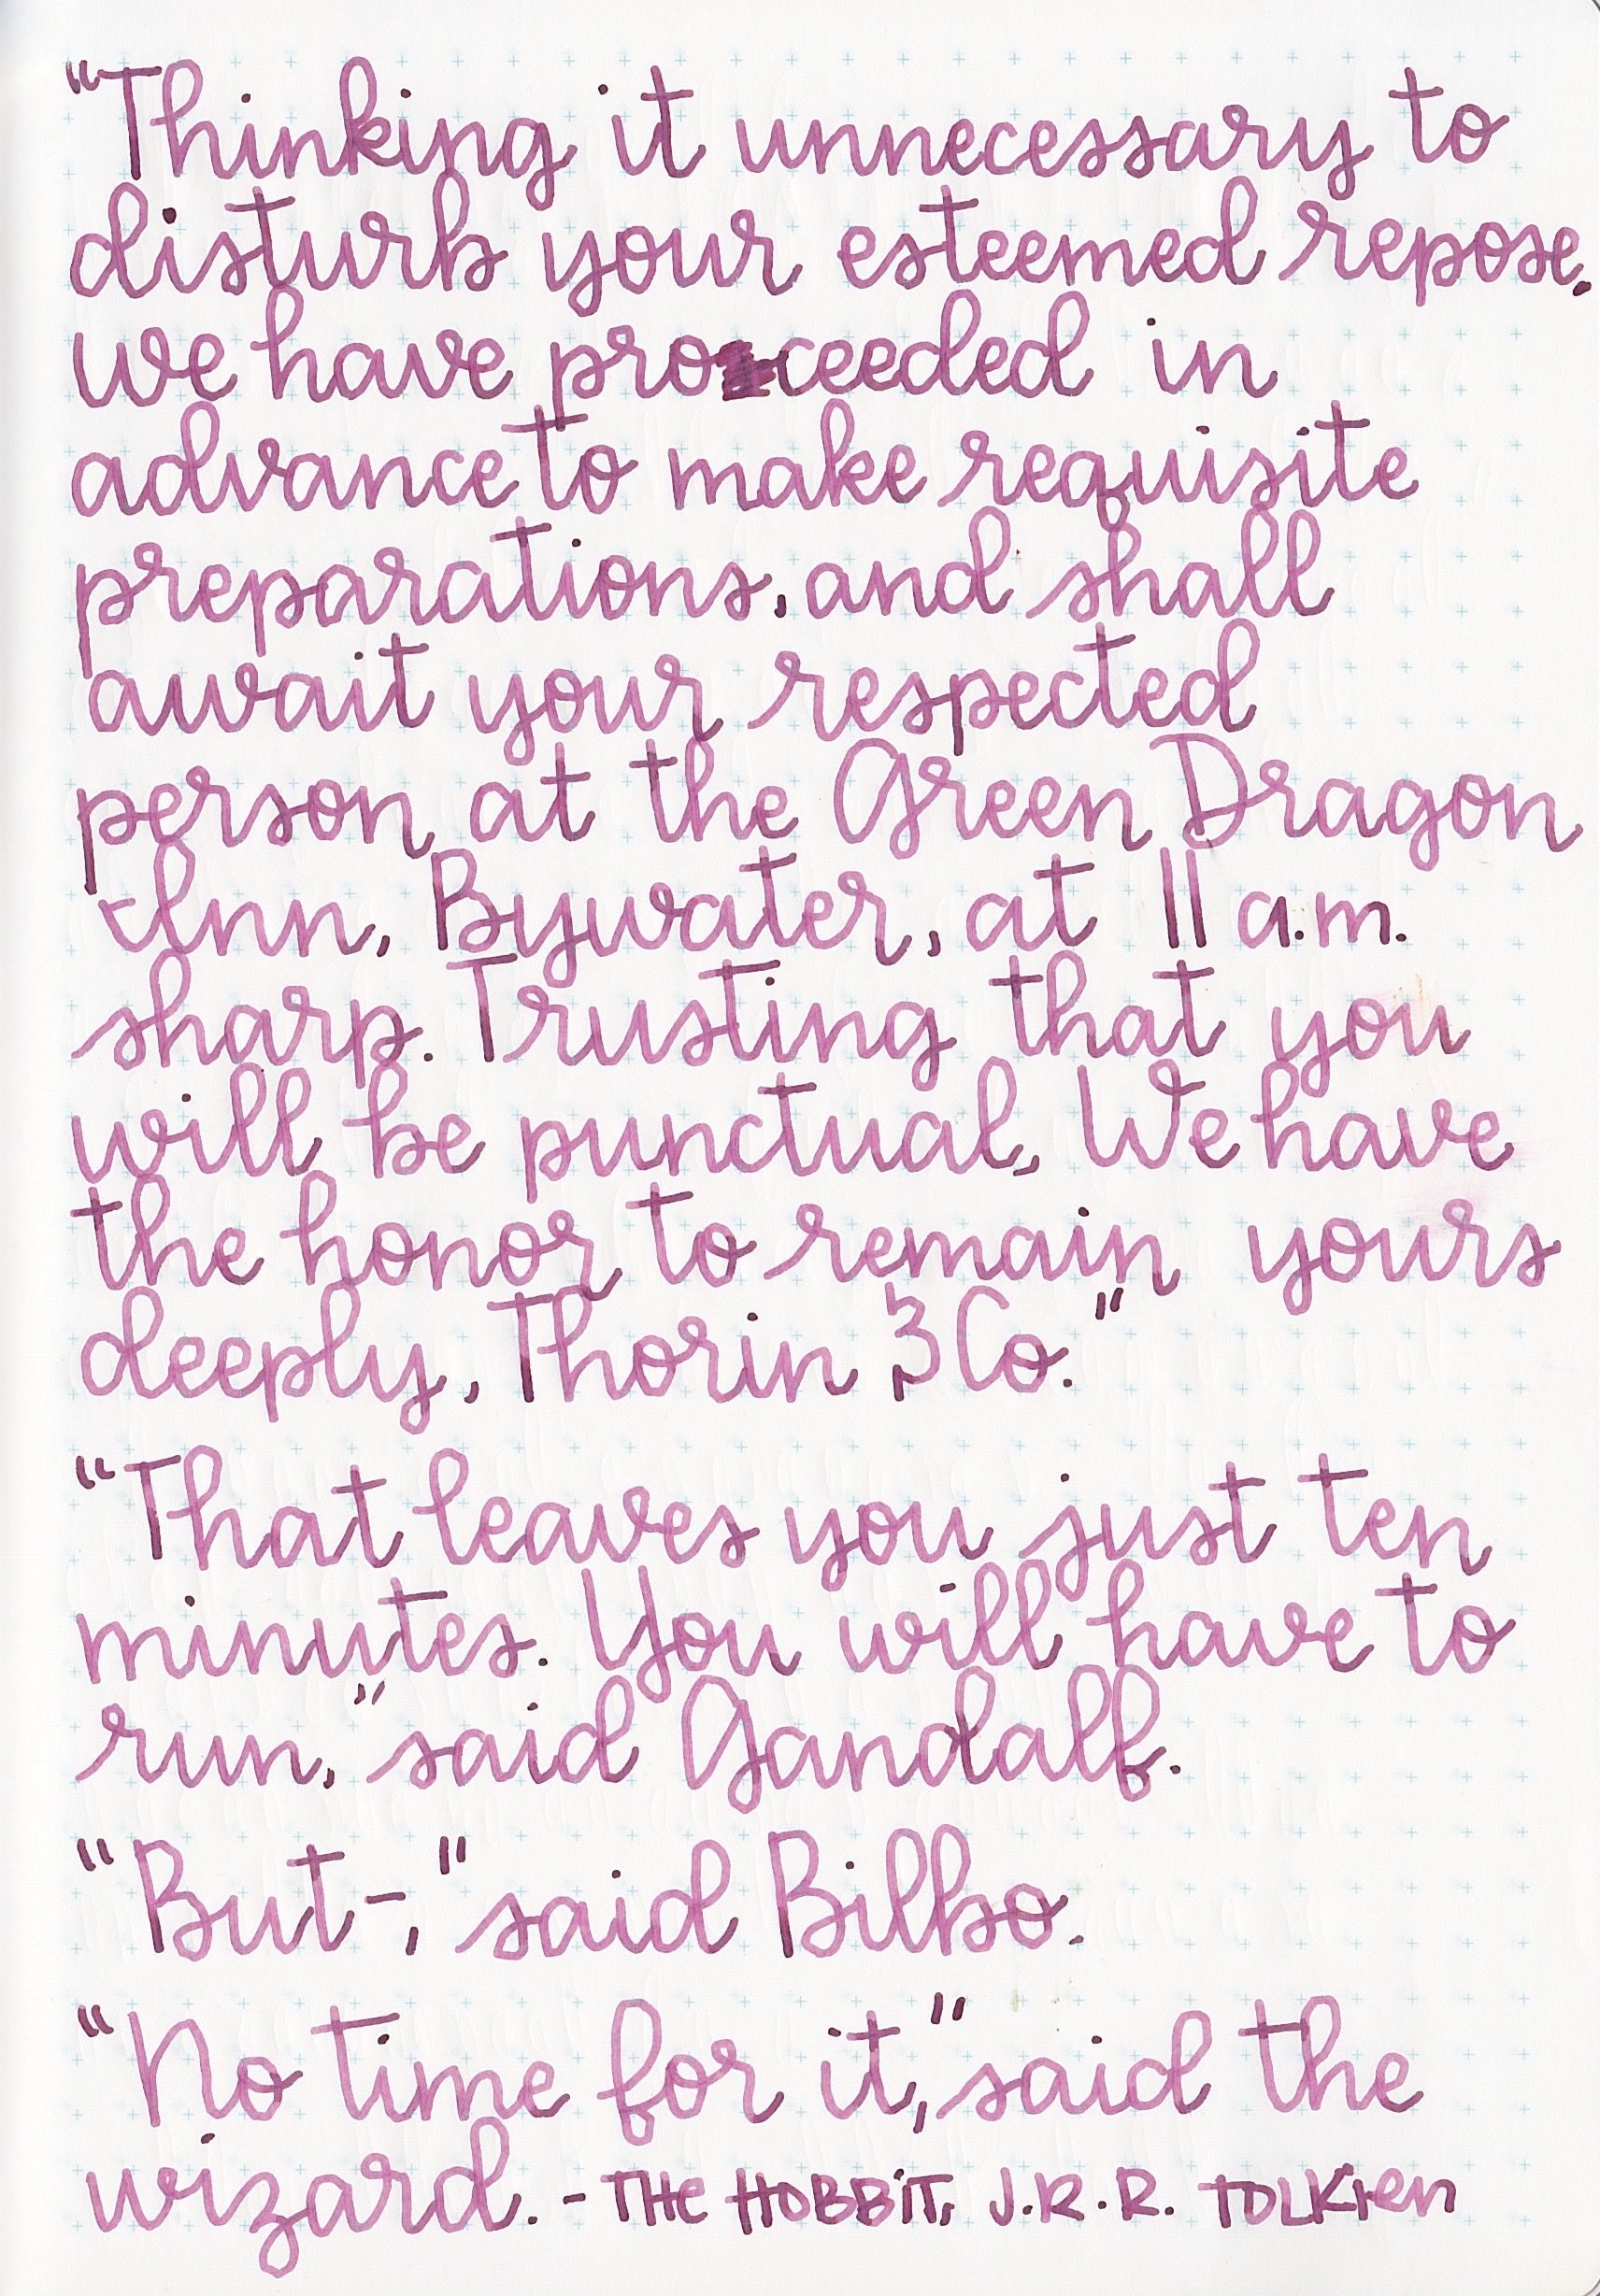 “Thinking it unnecessary to
disturb your esteemed repose,
we have proceeded in
advance to make requisite
preparations, and shall
await your respected
person at the Green Dragon
Inn, Bywater, at 11 a.m.
sharp. Trusting that you
will be punctual, We have
the honor to remain yours
deeply, Thorin & Co.”
“That leaves you just ten
minutes. You will have to
run,” said Gandalf.
“But-,” said Bilbo.
“No time for it,” said the
wizard. - THE HOBBIT, J.R.R. TOLKIEN